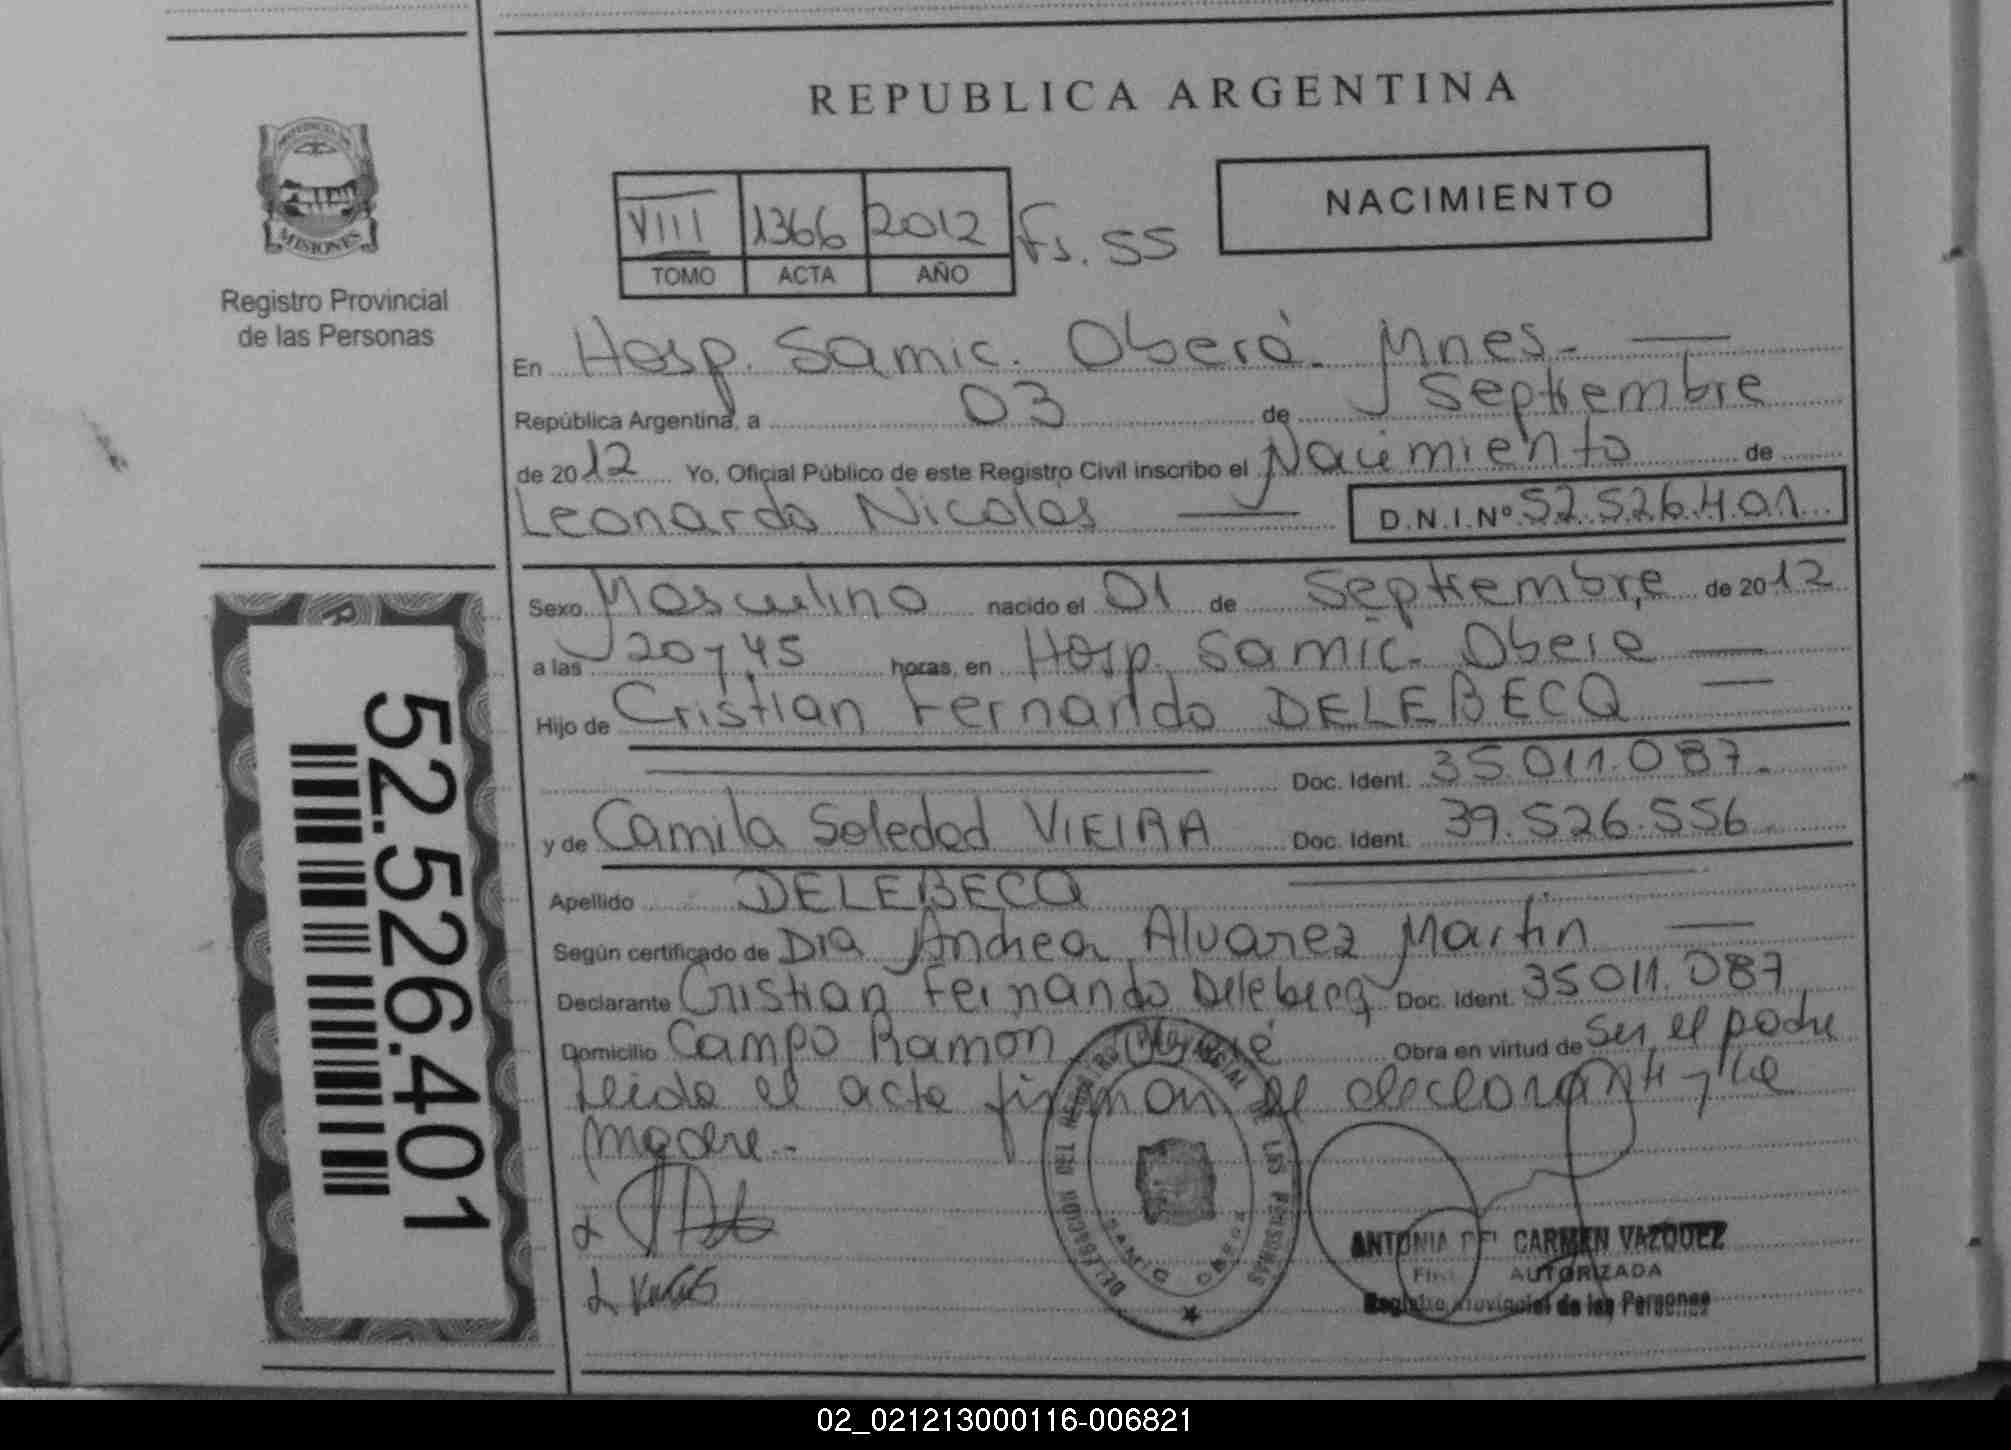 REPUBLICA ARGENTINA
PROVINCIA DE
MISIONES
Registro Provincial
de las Personas
NACIMIENTO
VIII 1366 2012 Fs. 55
TOMO ACTA AÑO
En Hosp. Samic. Oberá. Mnes.
República Argentina, a 03 de Septiembre
de 2012 Yo, Oficial Público de este Registro Civil inscribo el Nacimiento de
Leonardo Nicolás D.N.I.Nº 52.526.401
Sexo Masculino nacido el 01 de Septiembre de 2012
a las 20 y 45 horas, en Hosp. Samic. Obera
Hijo de Cristian Fernando DELEBECQ
Doc. Ident. 35.011.087.
y de Camila Soledad VIEIRA Doc. Ident. 39.526.556
Apellido DELEBECQ
Según certificado de Dra Andrea Alvarez Martin
Declarante Cristian Fernando Delebecq Doc. Ident. 35011.087
Domicilio Campo Ramon Obra en virtud de Ser el padre
Leida el acta firman el declarante y la
madre.-
52.526.401
DELEGACION DEL REGISTRO PROVINCIAL DE LAS PERSONAS
SAMIC OBERA
ANTONIA DEL CARMEN VAZQUEZ
AUTORIZADA
Registro Provincial de las Personas
02_021213000116-006821